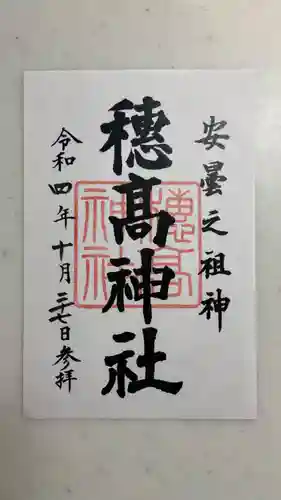 安曇之祖神
穂髙神社
令和四年十月二十七日参拝
穂高神社